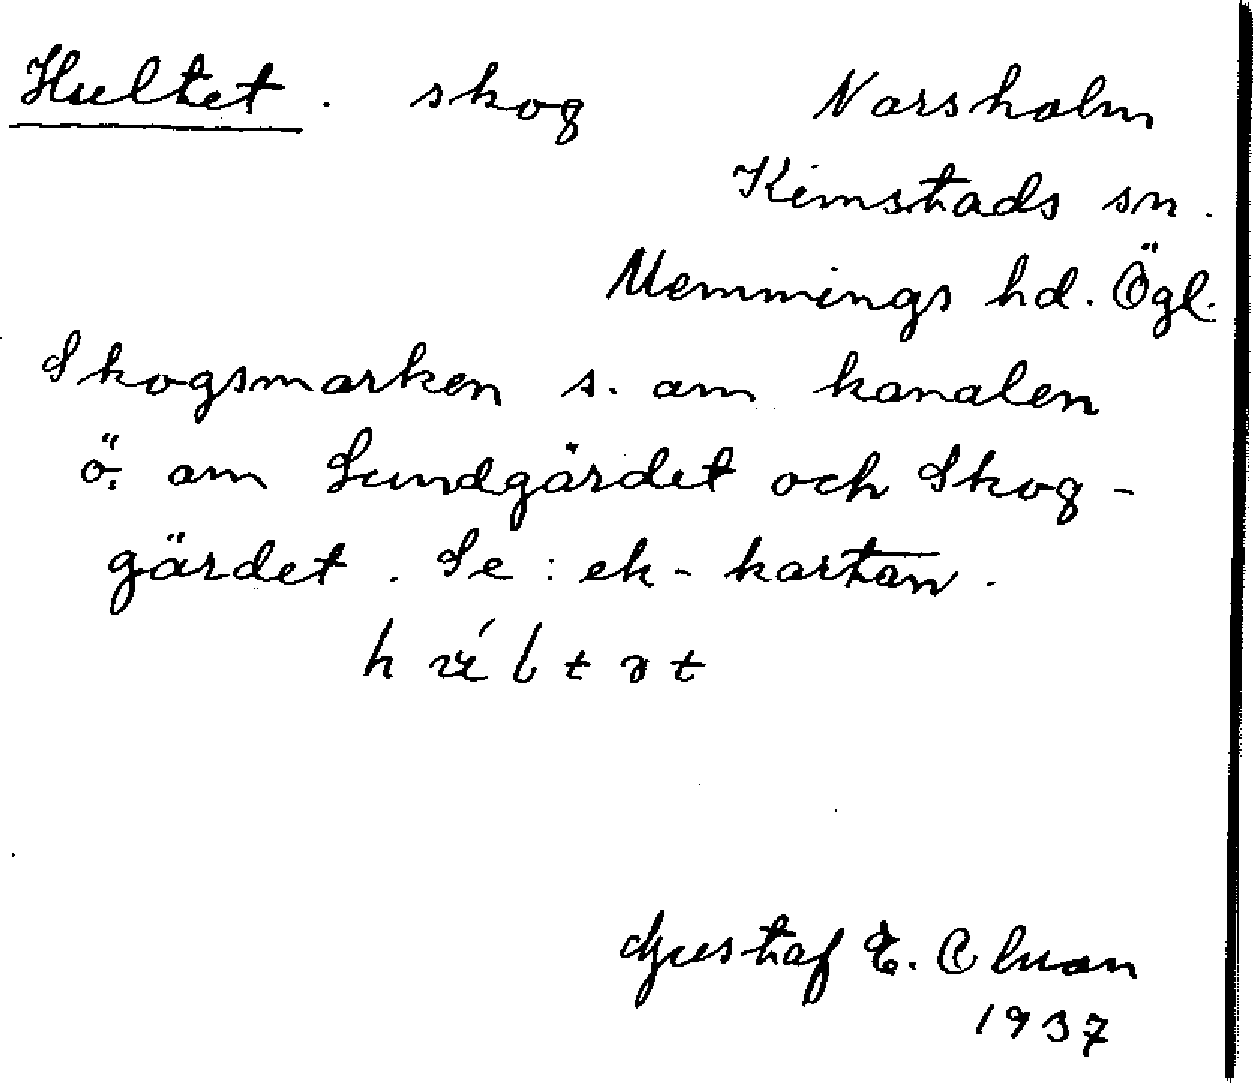 Hultet. skog Norsholm
Kimstads sn.
Memmings hd. Ögl.
Skogsmarken s. om kanalen
ö. om Sundgärdet och Skog-
gärdet. Se: ek-kartan.
Gustaf E.
1937